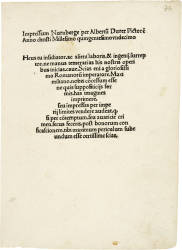 Impressum Nurnberge per Albertum Durer Pictorē
Anno christi Millesimo quingentesimo vndecimo
Heus tu insidiator: ac alieni laboris: & ingenij: surrep
tor: ne manus temerarias his nostris operi
bus inicias. caue. Scias enim a gloriosissi
mo Romanorū imperatore. Maxi
miliano. nobis concessum esse
ne quis suppositicijs for
mis: has imagines
imprimere:
seu impressas per impe
rij limites vendere audeat. q̄
si per contemptum: seu auaricie cri
men. secus feceris: post bonorum con
fiscationem: tibi maximum periculum sube
undum esse certissime scias.